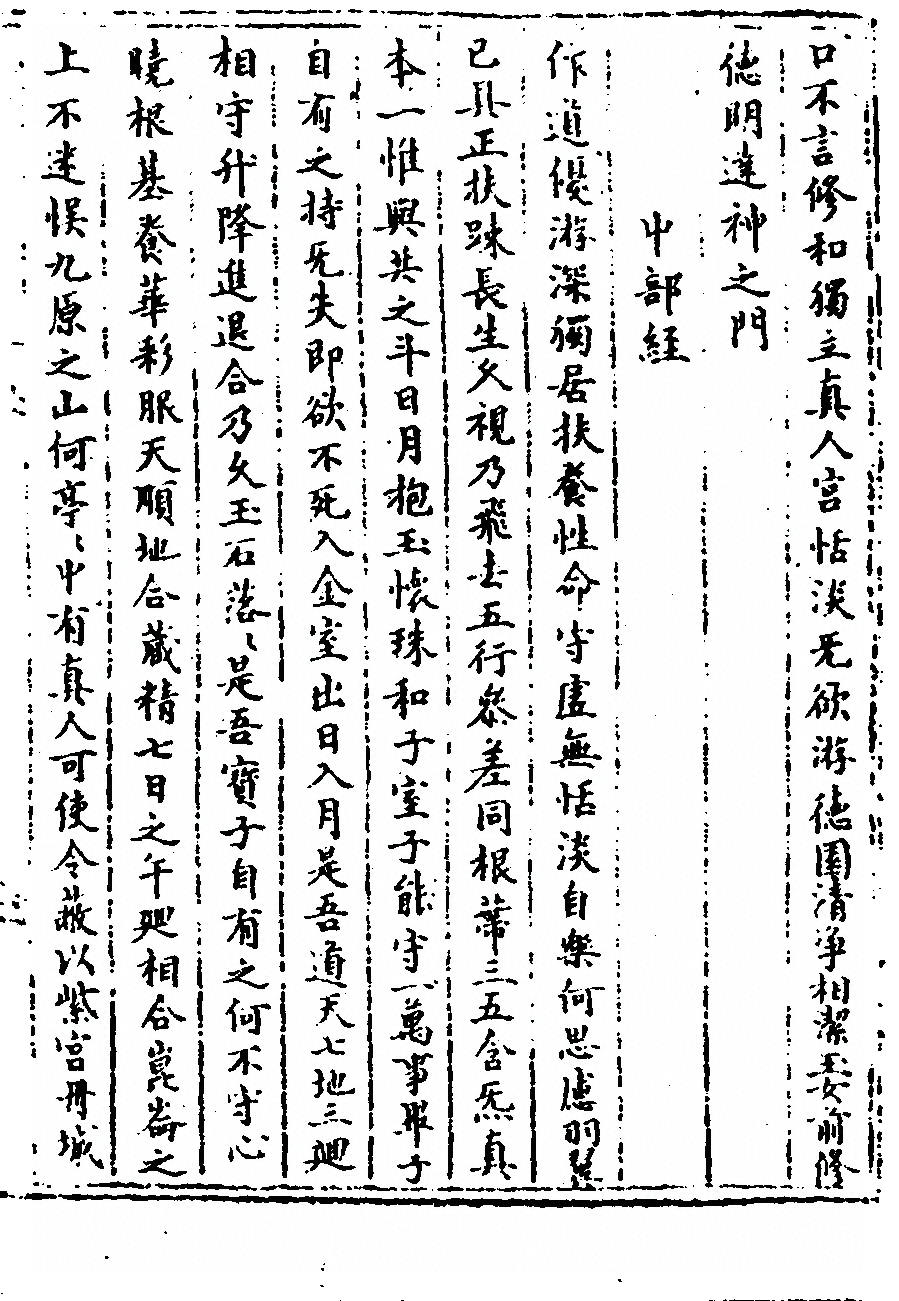 口不言修和獨立真人宮恬淡无欲游德園清淨相潔妾前修
德明達神之門
中部經
作道優游深獨居扶養性命守虛無恬淡自樂何思慮羽翼
已具正扶踈長生久視乃飛去五行參差同根蔕三五含炁真
本一惟與共之斗日月抱玉懷珠和子室子能守一萬事畢子
自有之持无失即欲不死入金室出日入月是吾道天七地三迴
相守升降進退合乃久玉石落〻是吾寶子自有之何不守心
曉根基養華彩服天順地合藏精七日之午迴相合崑崙之
上不迷悮九原之山何亭〻中有真人可使令蔽以紫宮丹城